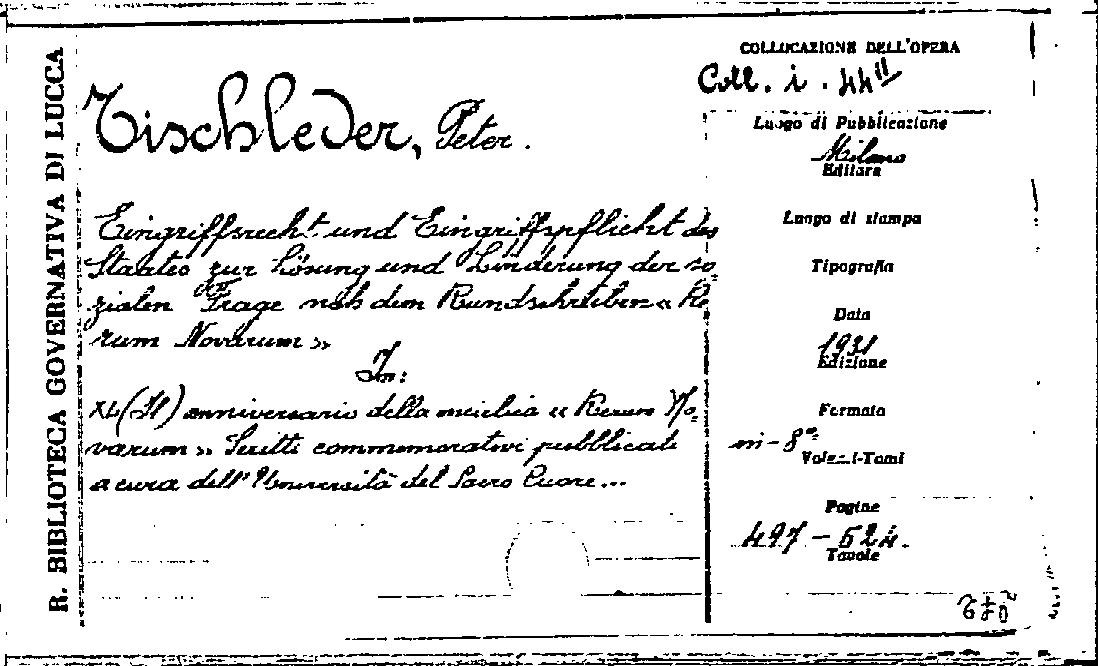 R. BIBLIOTECA GOVERNATIVA DI LUCCA
Tischleder, Peter.
Eingriffsrecht und Eingriffspflicht des
Staates zur Lösung und Linderung der so-
zialen Frage nach dem Rundschreiben « Re-
rum Novarum »
In:
XL (Il) anniversario della enciclica « Rerum No-
varum » Scritti commemorativi pubblicati
a cura dell'Università del Sacro Cuore...
COLLOCAZIONE DELL'OPERA
Coll. i. 44
Luogo di Pubblicazione
Milano
Editore
Luogo di stampa
Tipografia
Data
1931
Edizione
Formato
in-8°
Volumi-Tomi
Pagine
497 - 524.
Tavole